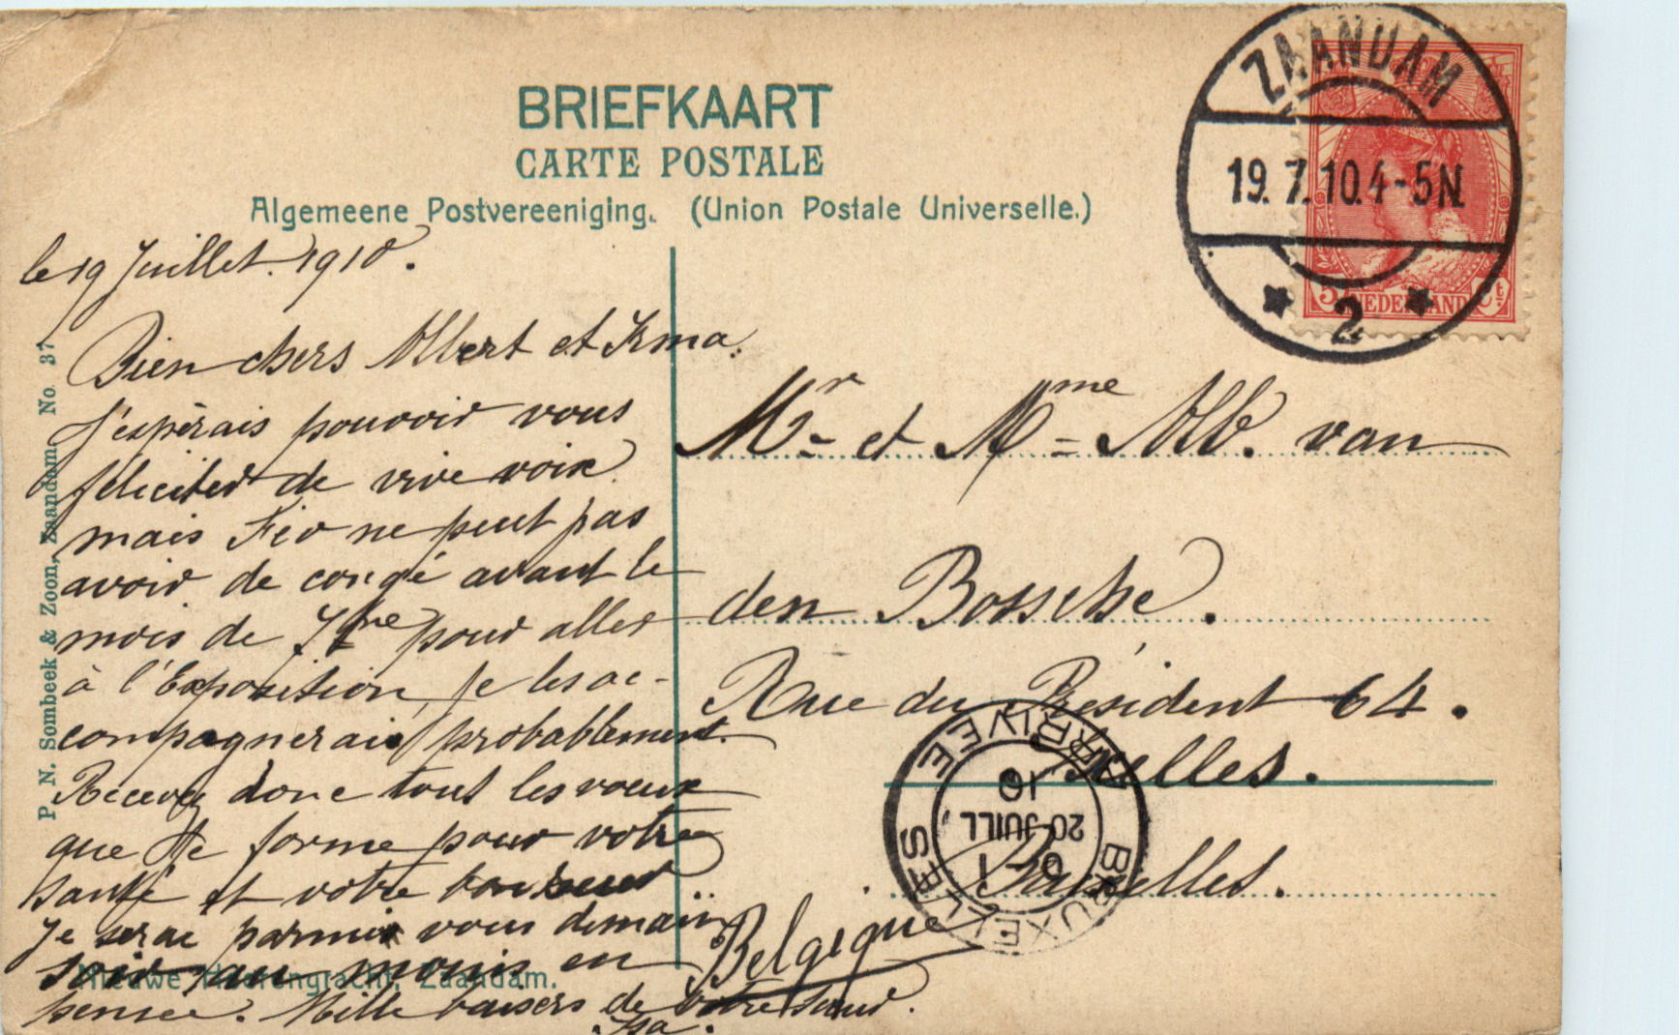 BRIEFKAART
CARTE POSTALE
Algemeene Postvereeniging. (Union Postale Universelle.)
ZAANDAM
19.7.10.4-5N
2
5 NEDERLAND Ct
le 19 Juillet. 1910.
Bien chers Albert et Irma.
J'espèrais pouvoir vous
féliciter de vive voix
mais ne peut pas
avoir de congé avant le
mois de 7bre pour aller
à l'Exposition, je les ac-
compagnerais probablement.
Recevez donc tout les voeux
que je forme pour votre
santé et votre bonheur
je serai parmis vous demain
soir, au moins en
pensée. Mille baisers de votre soeur.
Isa.
Mr. et Mme Alb. van
den Bossche.
Rue du Président 64.
Ixelles.
Bruxelles.
Belgique
BRUXELLES ARRIVEE
20 JUILL
10
P. N. Sombeek & Zoon, Zaandam. No 37
Nieuwe Heerengracht, Zaandam.